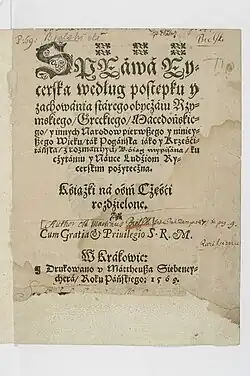 SPráwá Ry-
cerska według postępku y
záchowánia stárego obyczáiu Rzym-
skiego, Greckiego, Mácedońskie-
go, y innych Narodow pierwszego y ninieÿ-
szego Wieku, ták Pogáńska iáko y Krześći-
áńska, z rozmáitych Kśiąg wypisána, ku
czytániu y Náuce Ludźiom Ry-
cerskim pożyteczna.
Kśiąszki ná ośḿ Częśći
rozdźielone.
Author
Cum Gratia & Priuilegio S. R. M.
W Krákowie:
Drukowano v Mattheuszá Siebeney-
cherá, Roku Páńskiego: 1569.